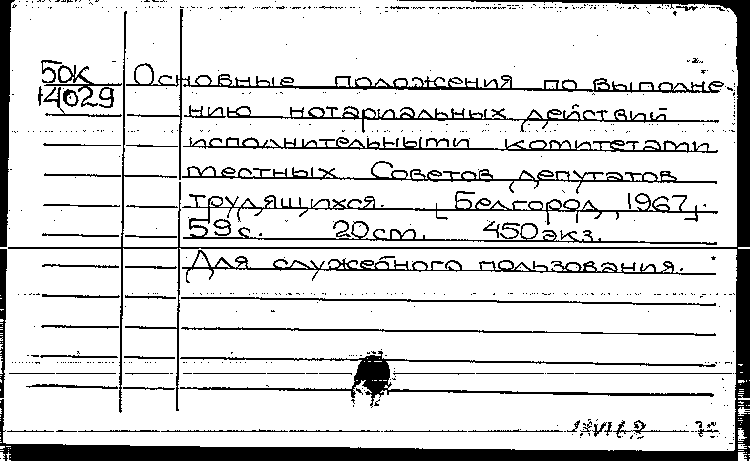 БОК
14029
Основные положения по выполне-
нию нотариальных действий
исполнительными комитетами
местных Советов депутатов
трудящихся. [Белгород, 1967].
59 с. 20 cm. 450 экз.
Для служебного пользования.